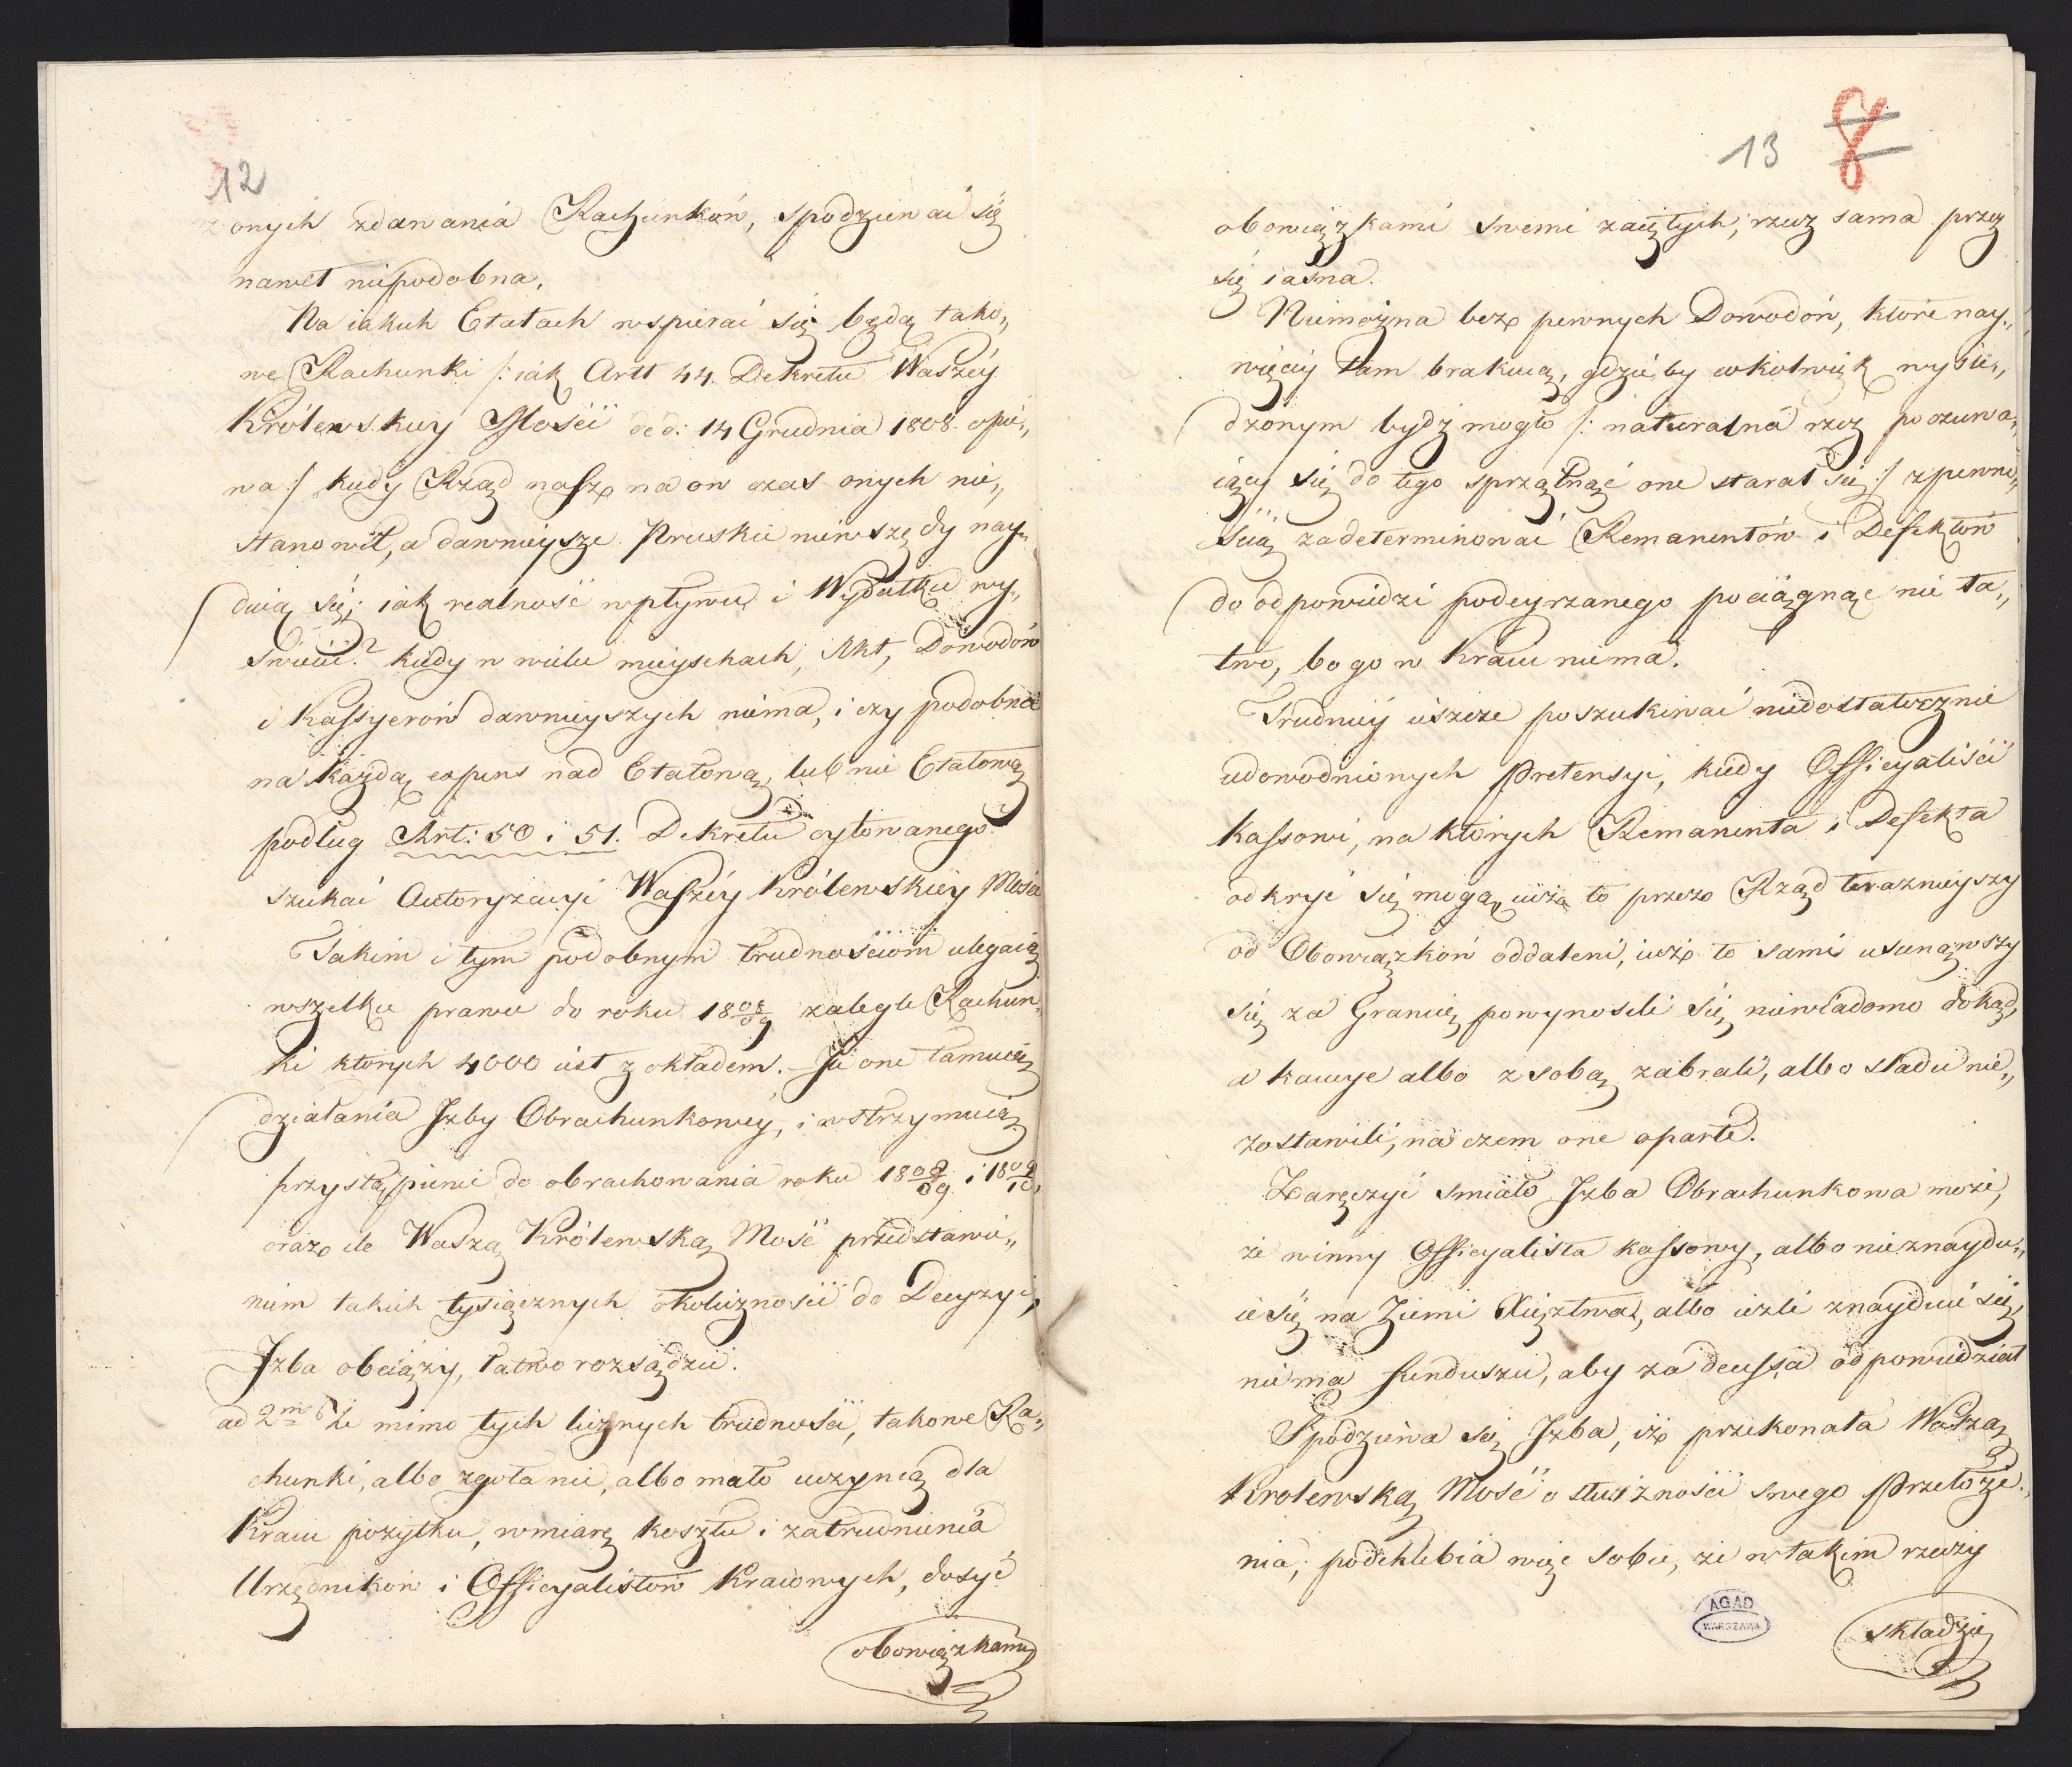 12
żonych zdawania Rachunków, spodziewać się
nawet niepodobna.
Na iakich Etatach wspierać się będą tako„
we Rachunki /: iak Artt 44. Dekretu Waszéy
Królewskiey Mości de d: 14 Grudnia 1808. opie„
wa :/ kiedy Rząd nasz na on czas onych nie„
stanowił, a dawnieysze Pruskie niewszędy nay„
duią się; iak realność wpływu i Wydatku wy„
świecić? kiedy w wielu mieyscach, Akt, Dowodów
i Kassyerów dawnieyszych niema, i czy podobna
na każdą expens nad Etatową, lub nie Etatową
podług Art: 50 i 51. Dekretu cytowanego
szukać Autoryzacyi Waszéy Królewskiey Mości
Takim i tym podobnym trudnościom ulegaią
wszelkie prawie do roku 1808/09 zaległe Rachun„
ki których 4000 iest z okładem. Te one tamuią
działania Izby Obrachunkowéy, i wstrzymuią
przystąpienie do obrachowania roku 1808/09 i 1809/10,
oraz ile Waszą Królewską Mość przedstawie„
niem takich tysiącznych okoliczności do Decyzyi,
Izba obciąży, łatwo rozsądzić.
ad 2m Że mimo tych licznych trudności, takowe Ra„
chunki, albo zgoła nic, albo mało uczynią dla
Kraiu pożytku, w miarę kosztu i zatrudnienia
Urzędników i Officyalistów Kraiowych, dosyć
obowiązkami
13 8
obowiązkami swemi zaiętych; rzecz sama przez
się iasna.
Niemożna bez pewnych Dowodów, które nay„
więcéy tam brakuią, gdzieby cokolwiek wyśle„
dzonym bydz mogło /: naturalna rzecz poczuwa„
iący się do tego sprzątnąć one starał się :/ z pewno„
ścią zadeterminować Remanentów i Defektów
do odpowiedzi podeyrzanego pociągnąć nie ła„
two, bo go w Kraiu niema.
Trudniéy ieszcze poszukiwać niedostatecznie
udowodnionych Pretensyi, kiedy Officyaliści
Kassowi, na których Remanenta i Defekta
odkryć się mogą, iuż to przez Rząd teraznieyszy
od Obowiązków oddaleni, iuż to sami usunąwszy
się za Granicę powynosili się niewiadomo dokąd,
a kaucye albo z sobą zabrali, albo śladu nie„
zostawili, na czem one oparte.
Zaręczyć śmiało Izba Obrachunkowa może,
że winny Officyalista kassowy, albo nieznaydu„
ie się na Ziemi Xięztwa, albo ieżli znayduie się,
niema funduszu, aby za decessa odpowiedział
Spodziewa się Izba, iż przekonała Waszą
Krolewską Mość o słuszności swego Przełoże„
nia; podchlebia więc sobie, że w takim rzeczy
składzie
AGAD
WARSZAWA